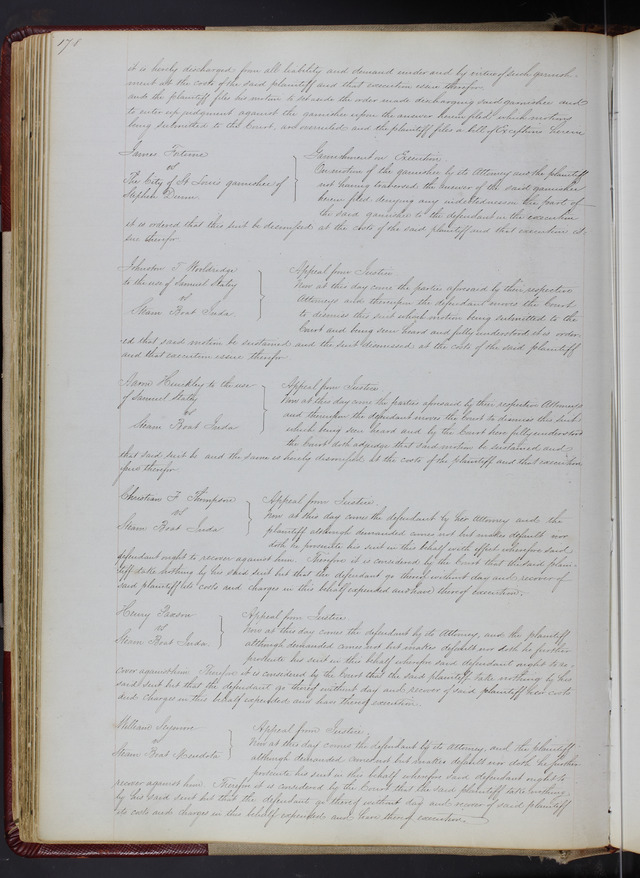 178
it is hereby discharged from all liability and demand under and by virtue of such garnish-
ment at the costs of the said plaintiff and that execution issue therefor
and the plaintiff files his motion to set aside the order made discharging said garnishee and
to enter up judgment against the garnishee upon the answer herein filed which motions
being submitted to the Court, are overruled and the plaintiff files a bill of Exceptions herein
James
vs
The City of St Louis garnishee of
Stephen
Garnishment on Execution
On motion of the garnishee by its Attorney and the plaintiff
not having the answer of the said garnishee
herein filed denying any indebtedness on the part of
the said garnishee to the defendant in the execution
it is ordered that this suit be dismissed at the costs of the said plaintiff and that execution is-
sue therefor
Johnston T Wooldridge
to the use of Samuel Staley
vs
Steam Boat Inda
Appeal from Justice
Now at this day came the parties aforesaid by their respective
Attorneys and thereupon the defendant moves the Court
to dismiss this suit which motion being submitted to the
Court and being seen heard and fully understood it is order-
ed that said motion be sustained and the suit dismissed at the costs of the said plaintiff
and that execution issue therefor
Aaron Hinckley to the use
of Samuel Staley
vs
Steam Boat Inda
Appeal from Justice
Now at this day came the parties aforesaid by their respective Attorneys
and thereupon the defendant moves the Court to dismiss this suit
which being seen heard and by the Court here fully understood
the Court doth adjudge that said motion be sustained and
that said suit be and the same is hereby dismissed at the costs of the plaintiff and that execution
issue therefor
Christian F Thompson
vs
Steam Boat Inda
Appeal from Justice
Now at this day comes the defendant by her Attorney and the
plaintiff although demanded comes not but makes default nor
doth he prosecute his suit in this behalf with effect wherefore said
defendant ought to recover against him. Therefore it is considered by the Court that the said plain-
tiff take nothing by his said suit but that the defendant go thereof without day and recover of
said plaintiff its costs and charges in this behalf expended and have thereof execution.
Henry Paxson
vs
Steam Boat Inda
Appeal from Justice
Now at this day comes the defendant by its Attorney, and the plaintiff
although demanded comes not but makes default nor doth he further
prosecute his suit in this behalf wherefore said defendant ought to re-
cover against him. Therefore it is considered by the Court that the said plaintiff take nothing by his
said suit but that the defendant go thereof without day and recover of said plaintiff her costs
and charges in this behalf expended and have thereof execution.
William Seymour
vs
Steam Boat Mendota
Appeal from Justice
Now at this day comes the defendant by its Attorney, and the plaintiff
although demanded comes not but makes default nor doth he further
prosecute his suit in this behalf wherefore said defendant ought to
recover against him. Therefore it is considered by the Court that the said plaintiff take nothing
by his said suit but that the defendant go thereof without day and recover of said plaintiff
its costs and charges in this behalf expended and have thereof execution.